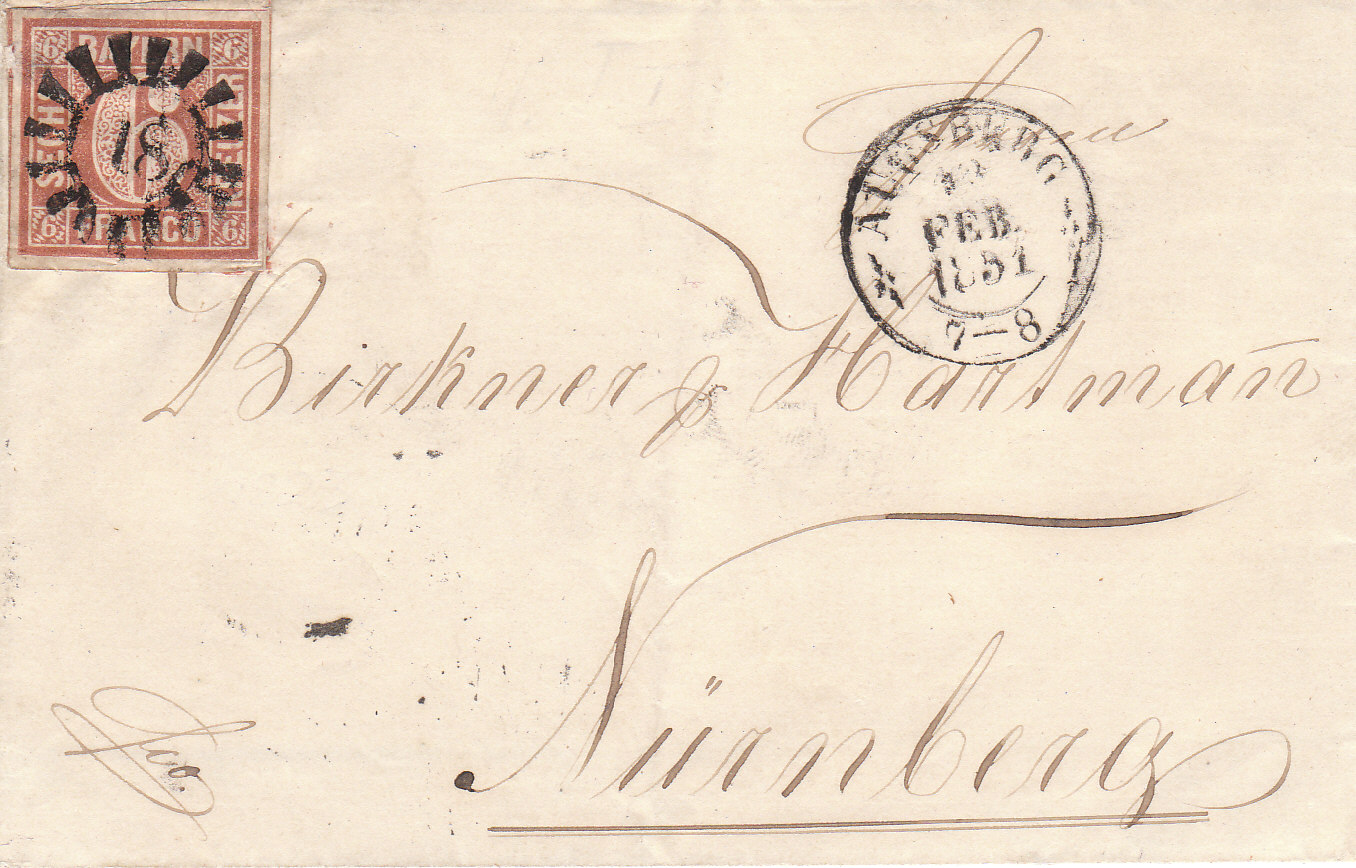 6 BAYERN 6
SECHS
6
KREUZER
6 FRANCO 6
18
Herrn
AUGSBURG
FEB.
1851
7–8
Birkner & Hartmañ
Nürnberg
fco